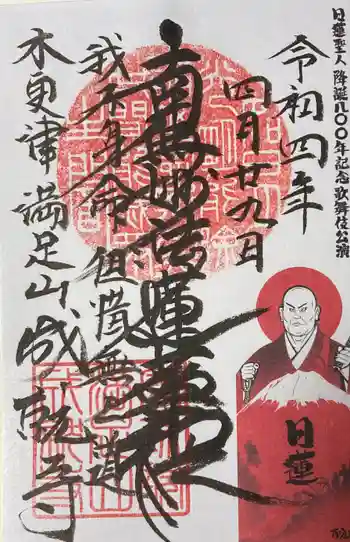 日蓮聖人降誕八〇〇年記念歌舞伎公演
令和四年
四月廿九日
南無妙法蓮華経
我不愛身命但惜無上道
木更津満足山成就寺
日蓮